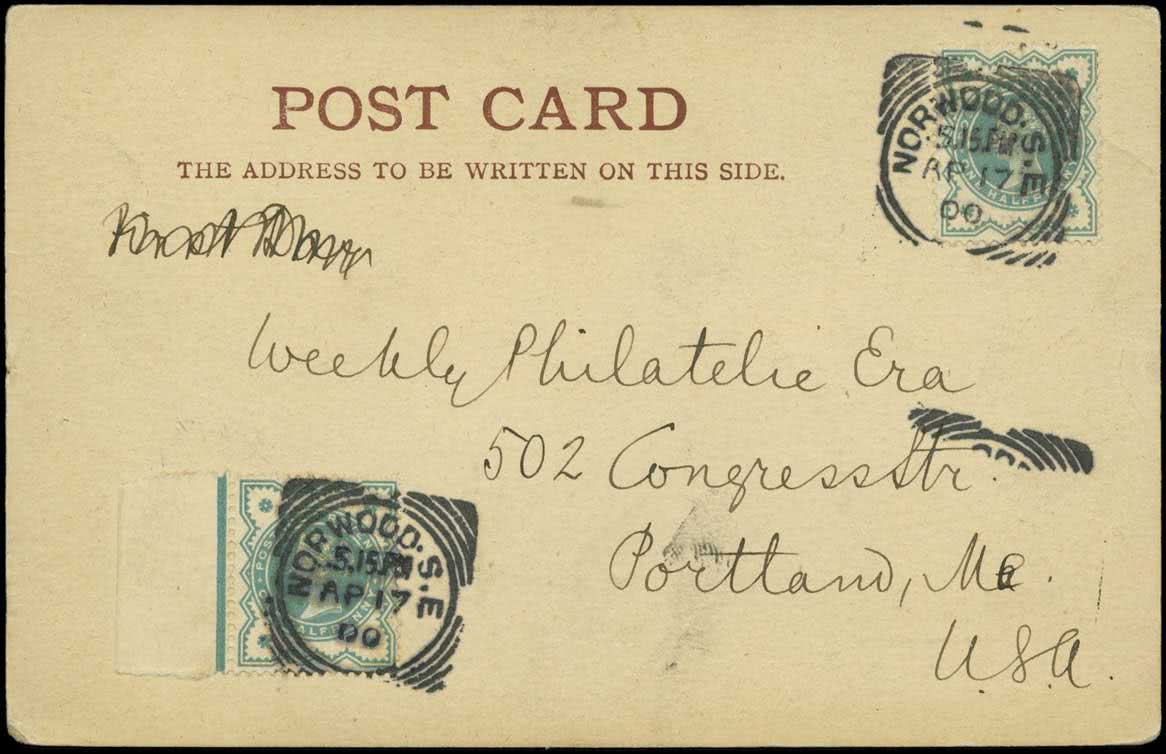 POST CARD
THE ADDRESS TO BE WRITTEN ON THIS SIDE.
NORWOOD. S.E
5.15.PM
AP 17
00
HALFPENNY
Weekly Philatelic Era
502 Congress Str.
Portland, Me.
U.S.A.
NORWOOD. S.E
5.15.PM
AP 17
00
HALFPENNY